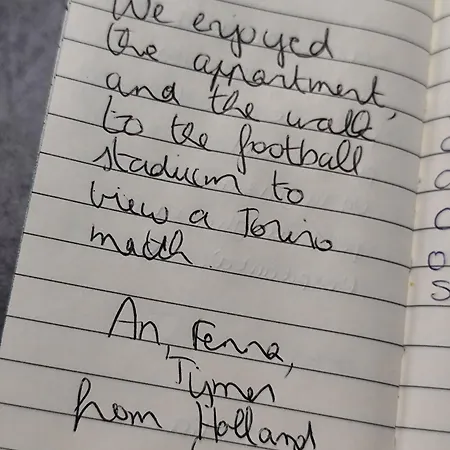 We enjoyed
the appartment,
and the walk
to the football
stadium to
view a Torino
match.
An, Fenna,
Tijmen
from Holland